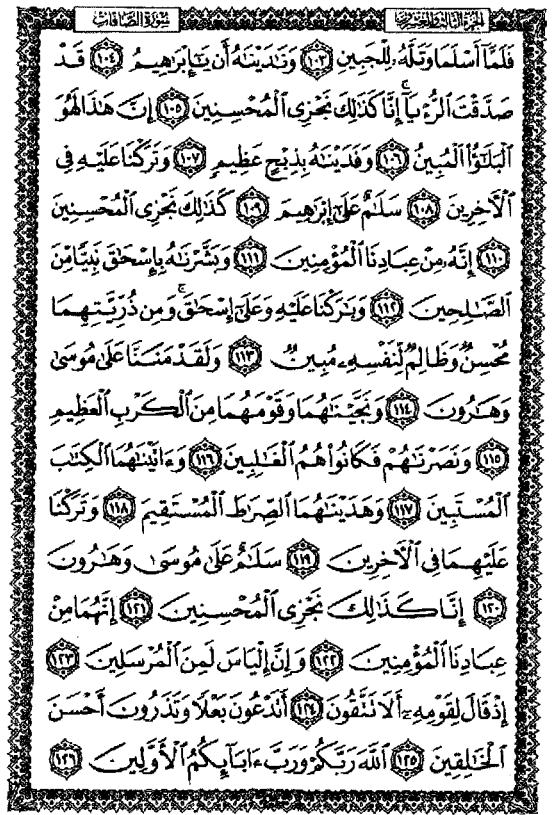 سورة الصافات الجزء الثالث والعشرون
فَلَمَّا أَسْلَمَا وَتَلَّهُۥ لِلْجَبِينِ ١٠٣ وَنَٰدَيْنَٰهُ أَن يَٰٓإِبْرَٰهِيمُ ١٠٤ قَدْ
صَدَّقْتَ ٱلرُّءْيَآ ۚ إِنَّا كَذَٰلِكَ نَجْزِى ٱلْمُحْسِنِينَ ١٠٥ إِنَّ هَٰذَا لَهُوَ
ٱلْبَلَٰٓؤُا۟ ٱلْمُبِينُ ١٠٦ وَفَدَيْنَٰهُ بِذِبْحٍ عَظِيمٍ ١٠٧ وَتَرَكْنَا عَلَيْهِ فِى
ٱلْءَاخِرِينَ ١٠٨ سَلَٰمٌ عَلَىٰٓ إِبْرَٰهِيمَ ١٠٩ كَذَٰلِكَ نَجْزِى ٱلْمُحْسِنِينَ
١١٠ إِنَّهُۥ مِنْ عِبَادِنَا ٱلْمُؤْمِنِينَ ١١١ وَبَشَّرْنَٰهُ بِإِسْحَٰقَ نَبِيًّا مِّنَ
ٱلصَّٰلِحِينَ ١١٢ وَبَٰرَكْنَا عَلَيْهِ وَعَلَىٰٓ إِسْحَٰقَ ۚ وَمِن ذُرِّيَّتِهِمَا
مُحْسِنٌ وَظَالِمٌ لِّنَفْسِهِۦ مُبِينٌ ١١٣ وَلَقَدْ مَنَنَّا عَلَىٰ مُوسَىٰ
وَهَٰرُونَ ١١٤ وَنَجَّيْنَٰهُمَا وَقَوْمَهُمَا مِنَ ٱلْكَرْبِ ٱلْعَظِيمِ
١١٥ وَنَصَرْنَٰهُمْ فَكَانُوا۟ هُمُ ٱلْغَٰلِبِينَ ١١٦ وَءَاتَيْنَٰهُمَا ٱلْكِتَٰبَ
ٱلْمُسْتَبِينَ ١١٧ وَهَدَيْنَٰهُمَا ٱلصِّرَٰطَ ٱلْمُسْتَقِيمَ ١١٨ وَتَرَكْنَا
عَلَيْهِمَا فِى ٱلْءَاخِرِينَ ١١٩ سَلَٰمٌ عَلَىٰ مُوسَىٰ وَهَٰرُونَ
١٢٠ إِنَّا كَذَٰلِكَ نَجْزِى ٱلْمُحْسِنِينَ ١٢١ إِنَّهُمَا مِنْ
عِبَادِنَا ٱلْمُؤْمِنِينَ ١٢٢ وَإِنَّ إِلْيَاسَ لَمِنَ ٱلْمُرْسَلِينَ ١٢٣
إِذْ قَالَ لِقَوْمِهِۦٓ أَلَا تَتَّقُونَ ١٢٤ أَتَدْعُونَ بَعْلًا وَتَذَرُونَ أَحْسَنَ
ٱلْخَٰلِقِينَ ١٢٥ ٱللَّهَ رَبَّكُمْ وَرَبَّ ءَابَآئِكُمُ ٱلْأَوَّلِينَ ١٢٦